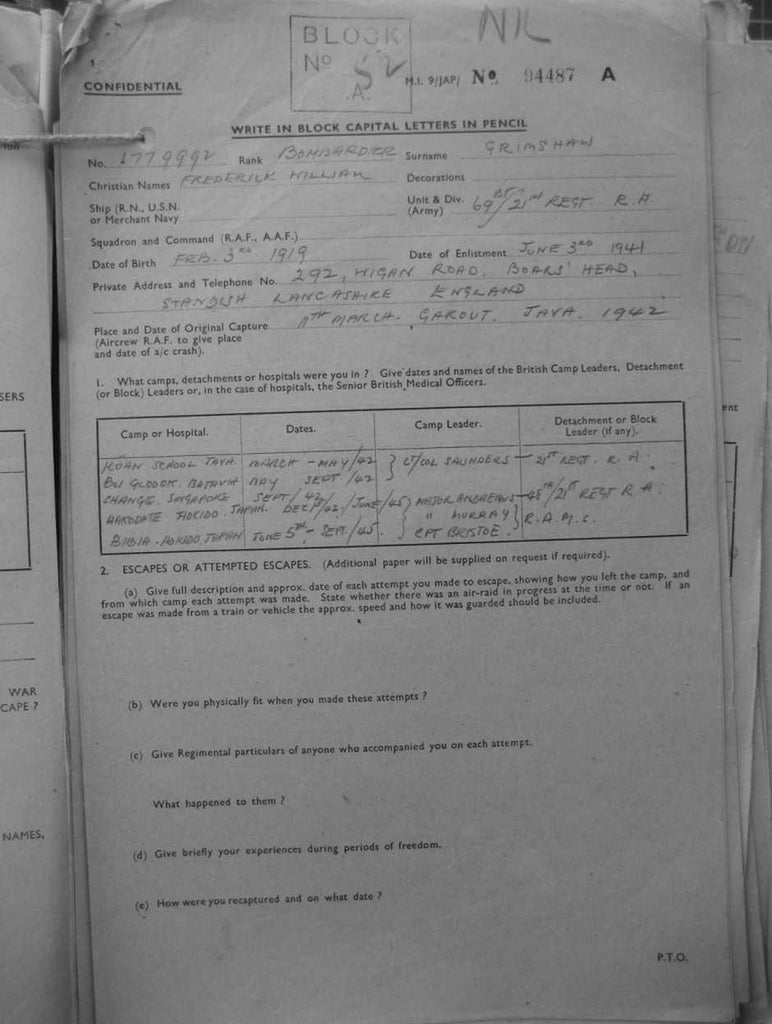 NIL
BLOCK
No 52
.A.
CONFIDENTIAL
M.I. 9/JAP/ No. 94487 A
WRITE IN BLOCK CAPITAL LETTERS IN PENCIL
No. 1779992 Rank BOMBARDIER Surname GRIMSHAW
Christian Names FREDERICK WILLIAM Decorations
Ship (R.N., U.S.N. or Merchant Navy
Unit & Div. (Army) 69 BT/21st REGT. R.A.
Squadron and Command (R.A.F., A.A.F.)
Date of Birth FEB. 3RD 1919 Date of Enlistment JUNE 3RD 1941
Private Address and Telephone No. 292, WIGAN ROAD, BOARS' HEAD,
STANDISH LANCASHIRE ENGLAND
Place and Date of Original Capture 11TH MARCH. GAROUT. JAVA. 1942
(Aircrew R.A.F. to give place
and date of a/c crash).
1. What camps, detachments or hospitals were you in ? Give dates and names of the British Camp Leaders, Detachment
(or Block) Leaders or, in the case of hospitals, the Senior British Medical Officers.
Camp or Hospital. Dates. Camp Leader. Detachment or Block
Leader (if any).
KOAN SCHOOL JAVA. MARCH - MAY/42 } LT/COL SAUNDERS - 21ST REGT. R.A.
BOI GLODOK. BATAVIA MAY SEPT/42
CHANGE. SINGAPORE SEPT/42
HAKODATE HOKIDO. JAPAN. DEC/42/JUNE/45 MAJOR ANDREWS - 48TH/21ST REGT R.A.
" MURRAY } R.A.M.C.
BIBIA. HOKIDO, JAPAN JUNE 5TH - SEPT/45. CPT BRISTOE.
2. ESCAPES OR ATTEMPTED ESCAPES. (Additional paper will be supplied on request if required).
(a) Give full description and approx. date of each attempt you made to escape, showing how you left the camp, and
from which camp each attempt was made. State whether there was an air-raid in progress at the time or not. If an
escape was made from a train or vehicle the approx. speed and how it was guarded should be included.
(b) Were you physically fit when you made these attempts ?
(c) Give Regimental particulars of anyone who accompanied you on each attempt.
What happened to them ?
(d) Give briefly your experiences during periods of freedom.
(e) How were you recaptured and on what date ?
P.T.O.
SERS
WAR
CAPE ?
NAMES,
ent